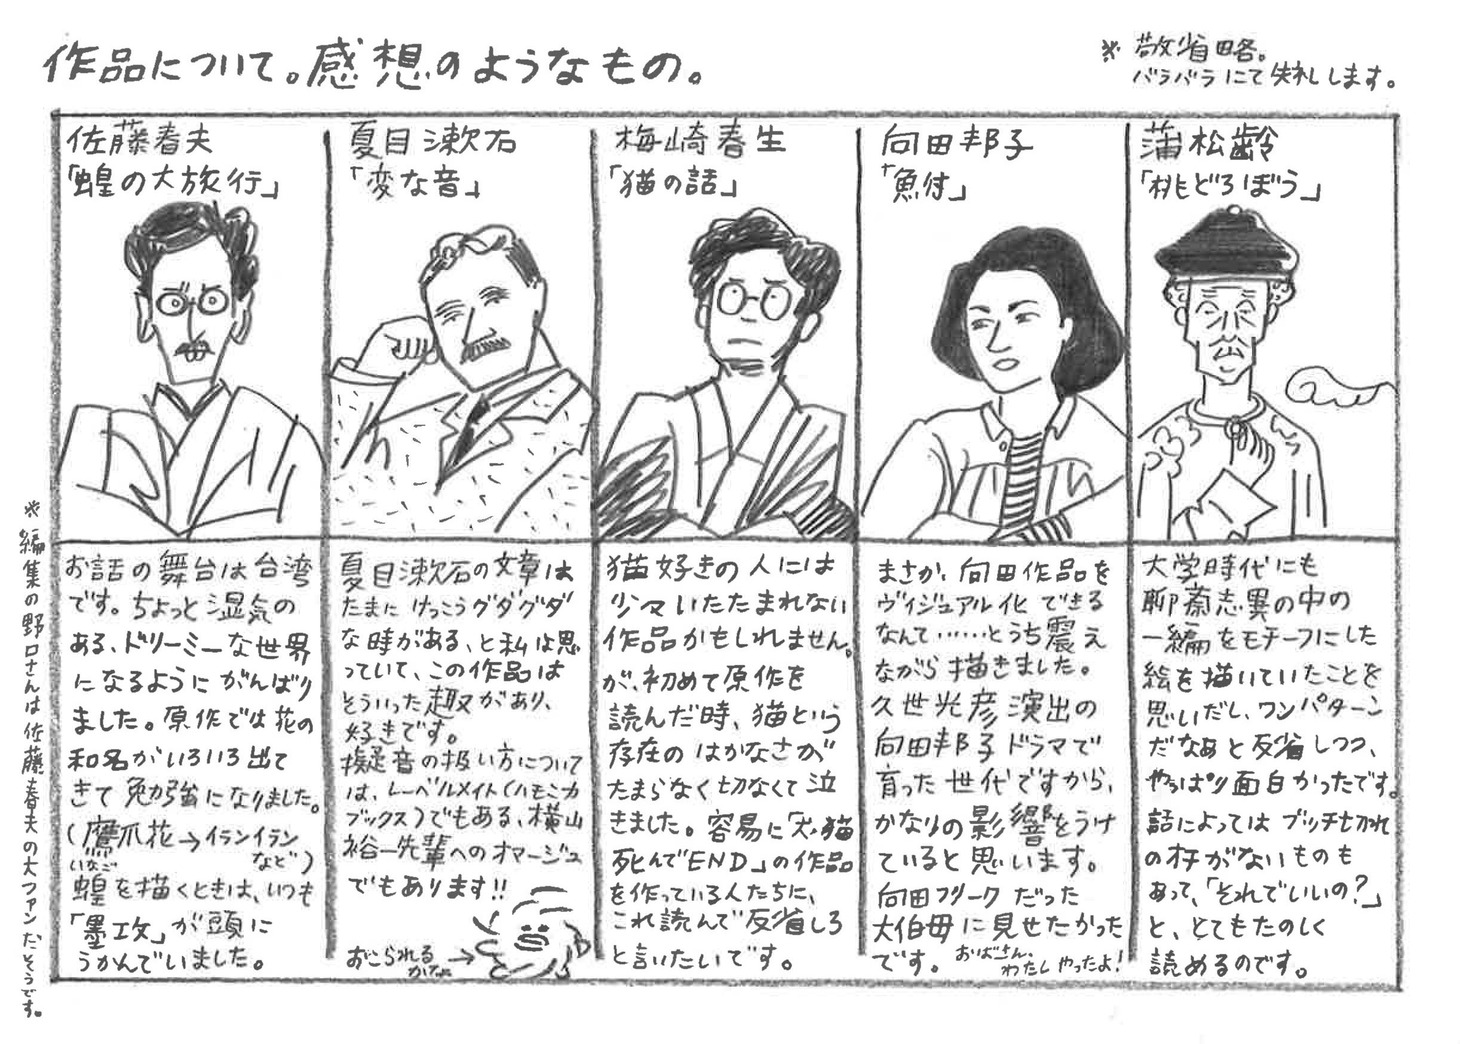 作品について。感想のようなもの。
※ 敬省略。
バラバラにて失礼します。
佐藤春夫
「蝗の大旅行」
お話の舞台は台湾
です。ちょっと湿気の
ある、ドリーミーな世界
になるようにがんばり
ました。原作では花の
和名がいろいろ出て
きて勉強になりました。
(鷹爪花→イランイラン
など)
いなご
蝗を描くときは、いつも
「墨攻」が頭に
うかんでいました。
※編集の野口さんは佐藤春夫の大ファンだそうです。
夏目漱石
「変な音」
夏目漱石の文章は
たまにけっこうグダグダ
な時がある、と私は思
っていて、この作品は
そういった趣があり、
好きです。
擬音の扱い方について
は、レーベルメイト(ハモニカ
ブックス)でもある、横山
裕一先輩へのオマージュ
でもあります!!
おこられる
かなぁ
梅崎春生
「猫の話」
猫好きの人には
少々いたたまれない
作品かもしれません。
が、初めて原作を
読んだ時、猫という
存在のはかなさが
たまらなく切なくて泣
きました。容易に「犬・猫
死んでEND」の作品
を作っている人たちに、
これ読んで反省しろ
と言いたいです。
向田邦子
「魚付」
まさか、向田作品を
ヴィジュアル化できる
なんて……とうち震え
ながら描きました。
久世光彦演出の
向田邦子ドラマで
育った世代ですから、
かなりの影響をうけ
ていると思います。
向田フリークだった
大伯母に見せたかった
です。
おばさん、
わたしやったよ!
蒲松齢
「桃どろぼう」
大学時代にも
聊斎志異の中の
一編をモチーフにした
絵を描いていたことを
思いだし、ワンパターン
だなぁと反省しつつ、
やっぱり面白かったです。
話によってはブッチ切れ
のオチがないものも
あって、「それでいいの?」
と、とてもたのしく
読めるのです。